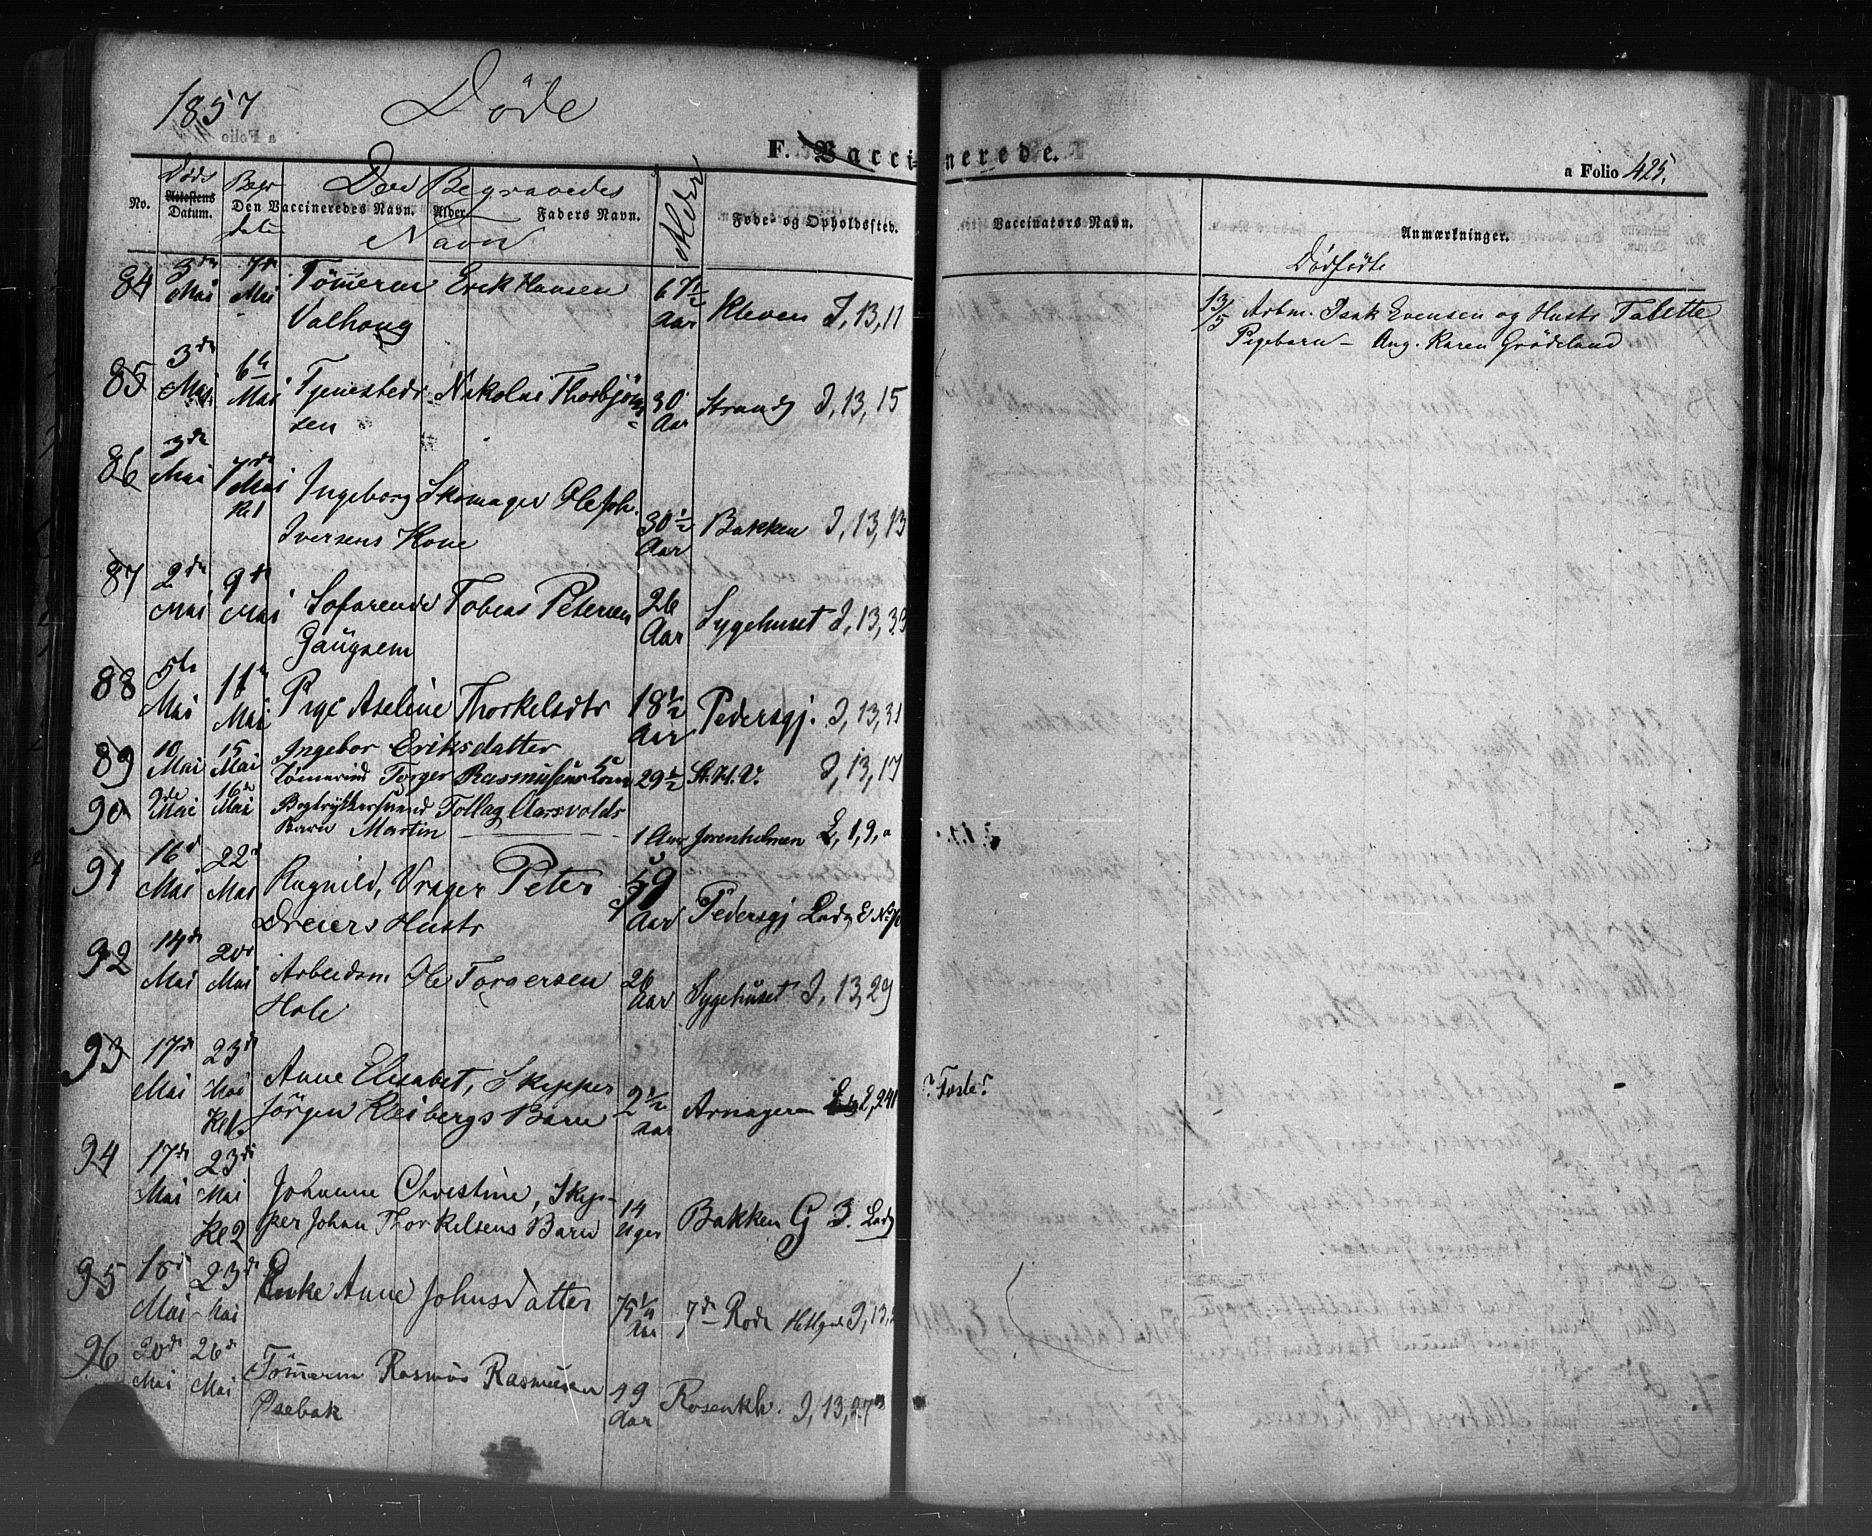 1857 Døde
F. Vaccinerede.
a Folio 425.
No. Døds Attestens Datum. Begr datum Den Vaccineredes Navn. Alder Faders Navn. Den Begravedes Navn Alder Føde- og Opholdssted. Vaccinators Navn. Anmærkninger.
Dødfødte
84 3die Mai 7de Mai Tömmerm Erik Hansen 67½ Aar Kleven I, 13, 11
Valhoug
13/5 Arbm. Isak Evensen og Hustr Tabette
Pigebarn – Ang. Karen Grödeland
85 3die Mai 6te Mai Tjenestedr. Nikolai Thorbjörn 30 Aar Strandg I, 13, 15
sen
86 3die Mai 7de Mai Kl 1 Ingeborg Skomager Ole Joh.
Iversens Kone 30½ Aar Bakken I, 13, 13
87 2den Mai 9de Mai Sofarende Tobias Petersen 26 Aar Sygehuset I, 13, 33
Gaugsem
88 5te Mai 11te Mai Pige Aseline Thorkelsdtr 18½ Aar Pedersgj. I, 13, 31
89 10 Mai 15 Mai Ingebor Eriksdatter
Tömmermd Torger Rasmussens Kone 29½ St. H. V. I, 13, 17
90 9de Mai 16de Mai Bogtrykkersvend Tollag Aarsvolds
Barn Martin 1 Aar Jorenholmen L, 1, 9, a
91 16d Mai 22d Mai Ragnild, Vrager Peter 59 Aar Pedersgj Ladg E No
Dreiers Hustr
92 14de Mai 20de Mai Arbeidsm Ole Torgersen 26 Aar Sygehuset I, 13, 29
Hole
93 17de Mai 23de Mai Kl 6 Anne Elisabet, Skipper
Jörgen Kleibergs Barn 2½ Aar Arnageren 2, 241 ? Toste?
94 17de Mai 23de Mai Kl 2 Johanne Christine, Skip-
per Johan Thorkelsens Barn 14 Uger Bakken G 3. Ladg
95 18de Mai 23de Mai Enke Anne Johnsdatter 75¼ Aar 7de Rode I, 13,
96 20de Mai 26de Mai Tömmerm Rasmus Rasmussen 49 Aar Rosenkh. I, 13, 27
Osebak